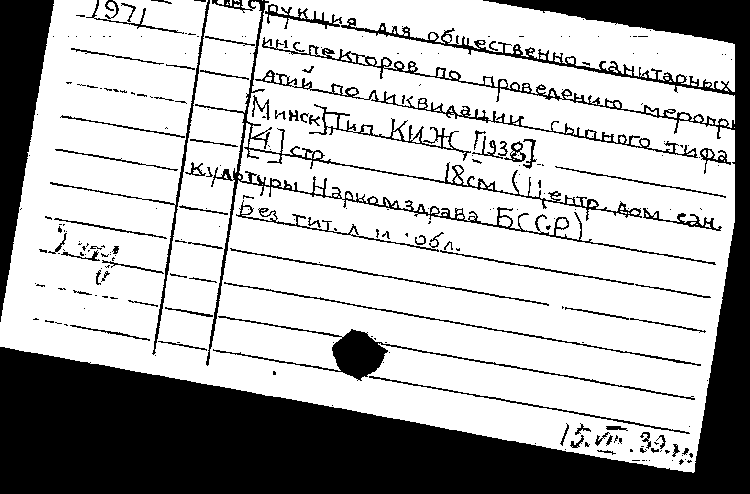 1971
Инструкция для общественно-санитарных
инспекторов по проведению меропри
ятий по ликвидации сыпного тифа.
[Минск], Тип. КИЖ, [1938].
[4] стр. 18см. (Центр. дом сан.
культуры Наркомздрава БССР).
Без тит. л. и обл.
2 экз
15.VIII.39.